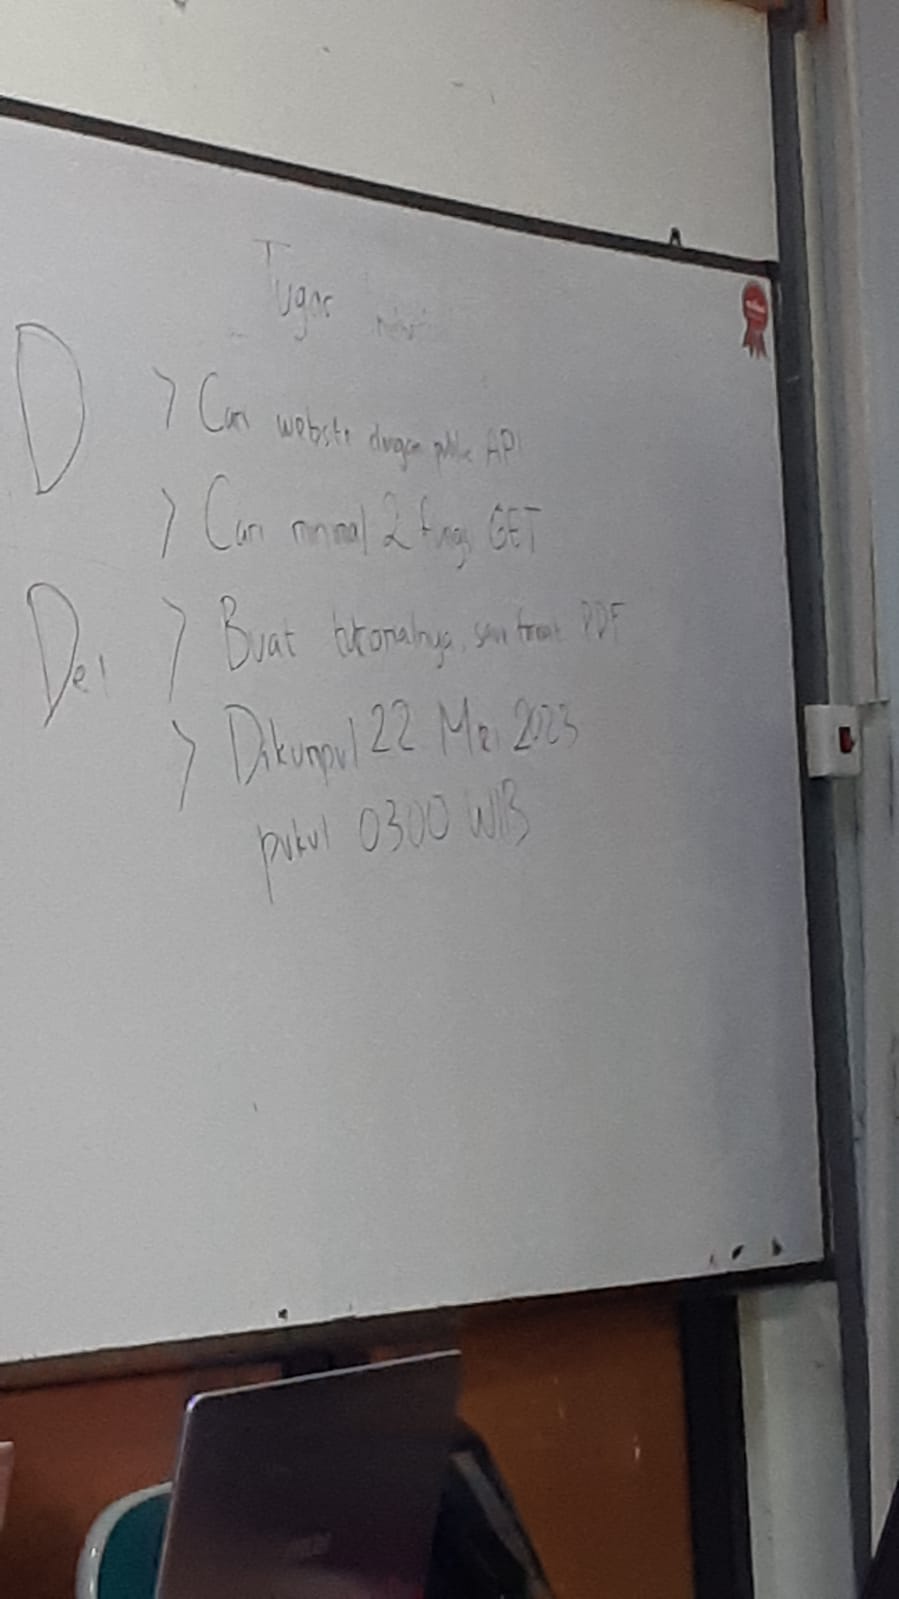 Tugas
D
> Cari website dengan public API
> Cari minimal 2 fungsi GET
De
> Buat tutorialnya, format PDF
> Dikumpul 22 Mei 2023
pukul 0300 WIB